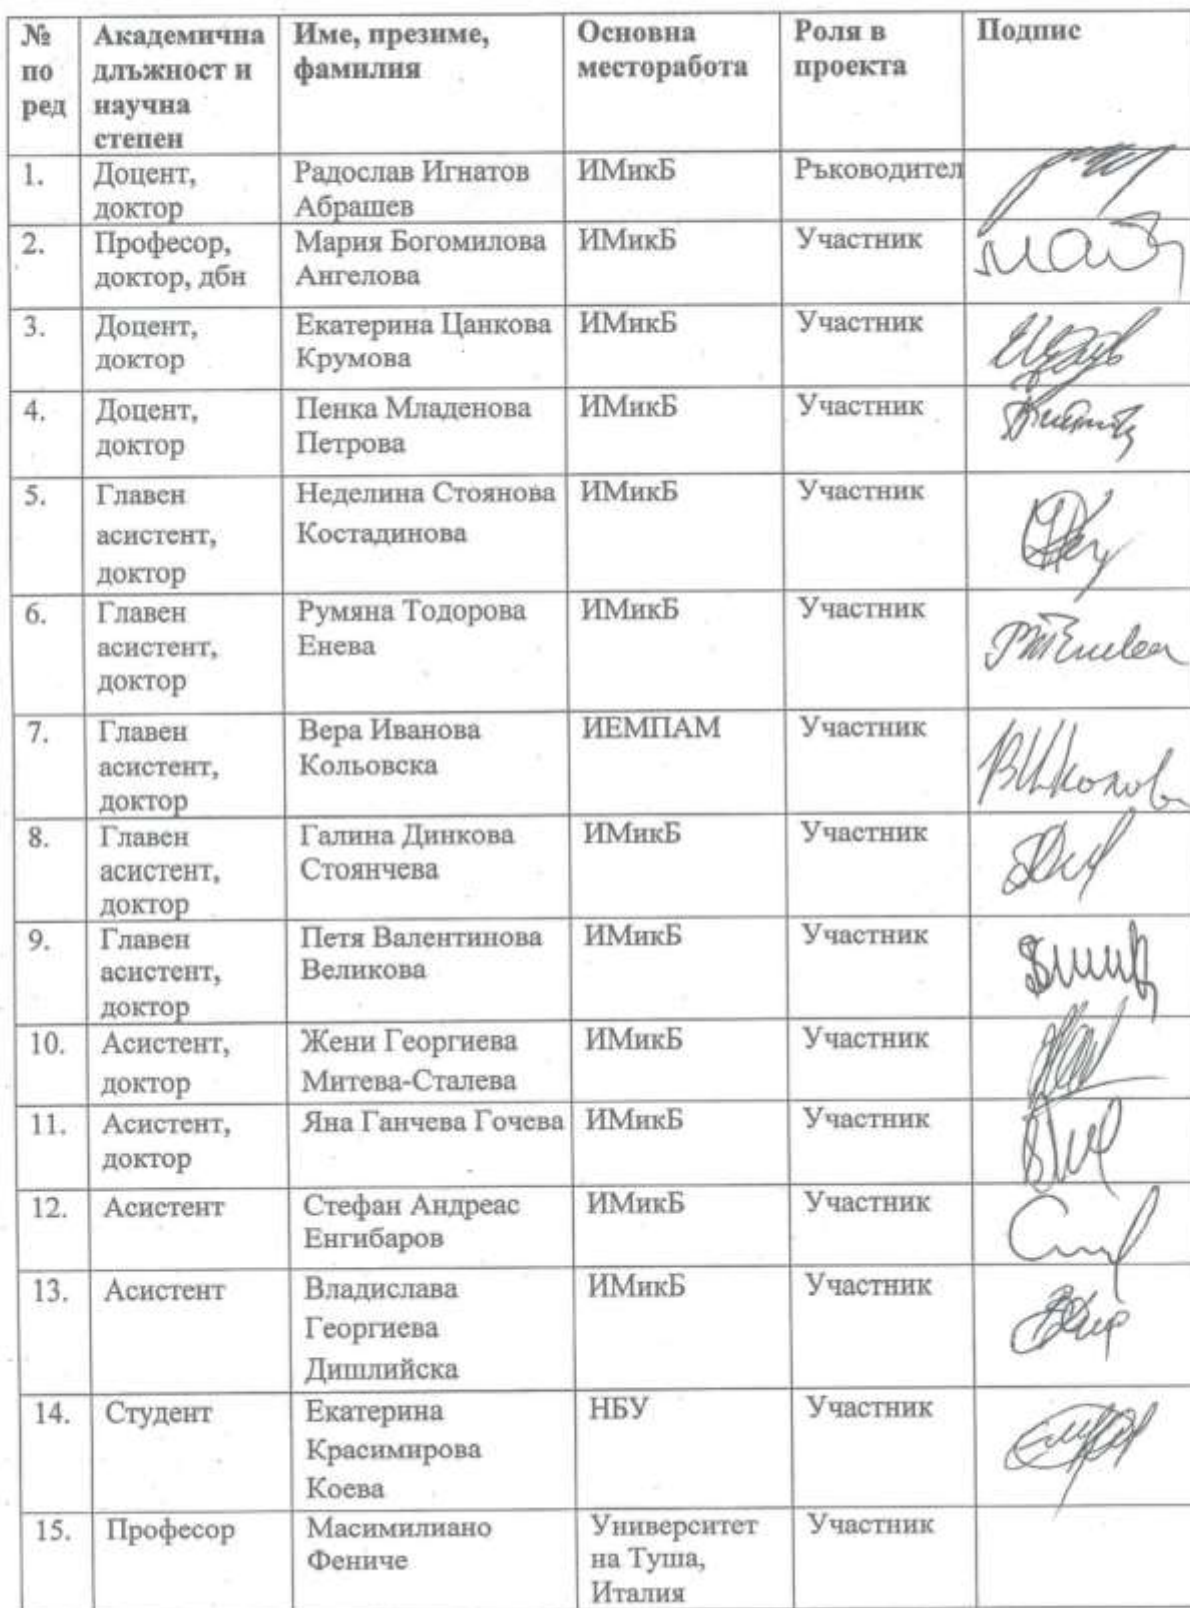 № по ред Академична длъжност и научна степен Име, презиме, фамилия Основна месторабота Роля в проекта Подпис
1. Доцент, доктор Радослав Игнатов Абрашев ИМикБ Ръководител
2. Професор, доктор, дбн Мария Богомилова Ангелова ИМикБ Участник
3. Доцент, доктор Екатерина Цанкова Крумова ИМикБ Участник
4. Доцент, доктор Пенка Младенова Петрова ИМикБ Участник
5. Главен асистент, доктор Неделина Стоянова Костадинова ИМикБ Участник
6. Главен асистент, доктор Румяна Тодорова Енева ИМикБ Участник
7. Главен асистент, доктор Вера Иванова Кольовска ИЕМПАМ Участник
8. Главен асистент, доктор Галина Динкова Стоянчева ИМикБ Участник
9. Главен асистент, доктор Петя Валентинова Великова ИМикБ Участник
10. Асистент, доктор Жени Георгиева Митева-Сталева ИМикБ Участник
11. Асистент, доктор Яна Ганчева Гочева ИМикБ Участник
12. Асистент Стефан Андреас Енгибаров ИМикБ Участник
13. Асистент Владислава Георгиева Дишлийска ИМикБ Участник
14. Студент Екатерина Красимирова Коева НБУ Участник
15. Професор Масимилиано Фениче Университет на Туша, Италия Участник